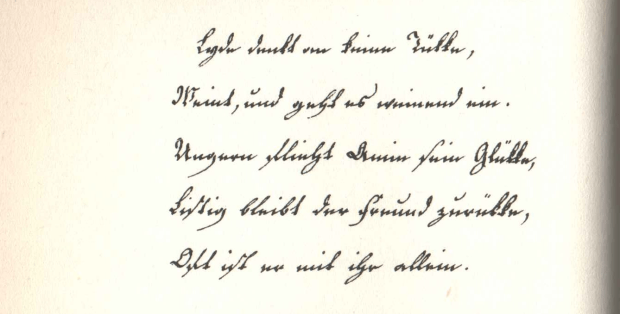 Lyde denkt an keine Tükke,
Weint, und geht es weinend ein.
Ungern flieht Amin sein Glükke,
Listig bleibt der Freund zurükke,
Oft ist er mit ihr allein.